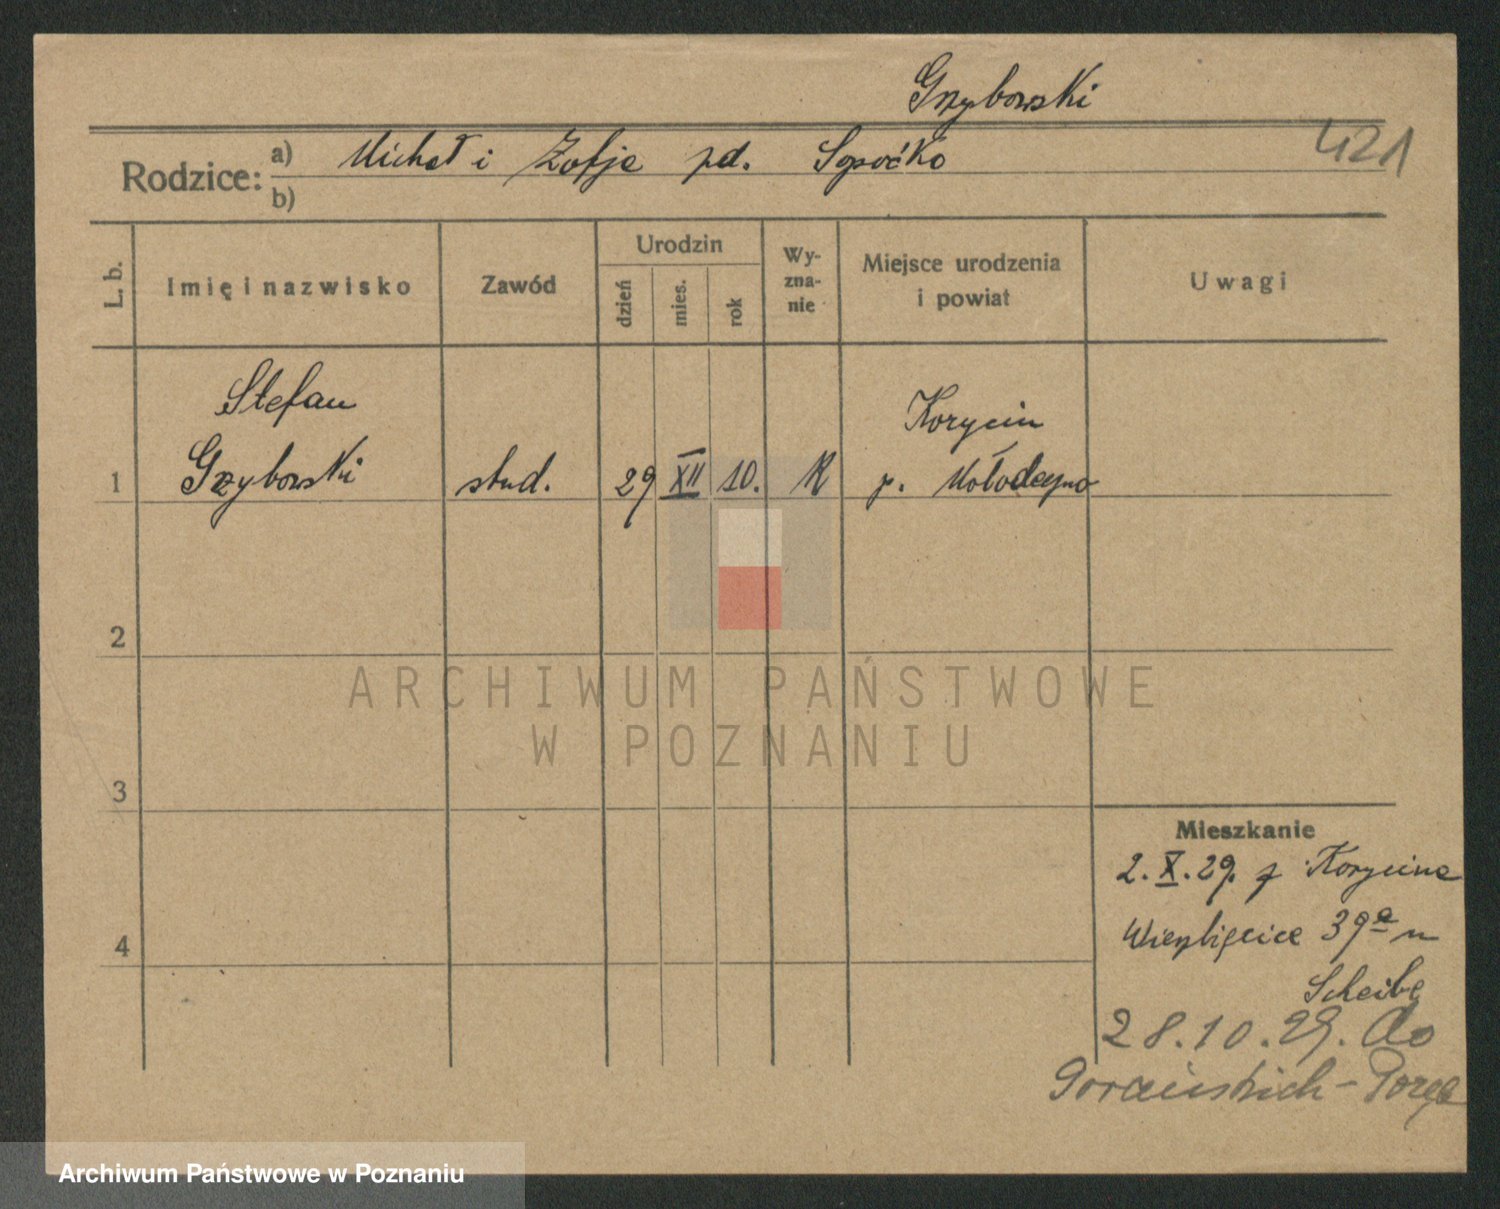 Grzybowski
421
Rodzice: a) Michał i Zofja pd. Sopoćko
b)
L. b.
Imię i nazwisko
Zawód
Urodzin
dzień
mies.
rok
Wy-
zna-
nie
Miejsce urodzenia
i powiat
Uwagi
Stefan
Korycin
1 Grzybowski stud. 29 XII 10. K p. Mołodeczno
2
3
4
Mieszkanie
2.X.29. z Korycina
Wierzbięcice 39a m
Scheibe
28.10.29. do
ARCHIWUM PAŃSTWOWE
W POZNANIU
Archiwum Państwowe w Poznaniu